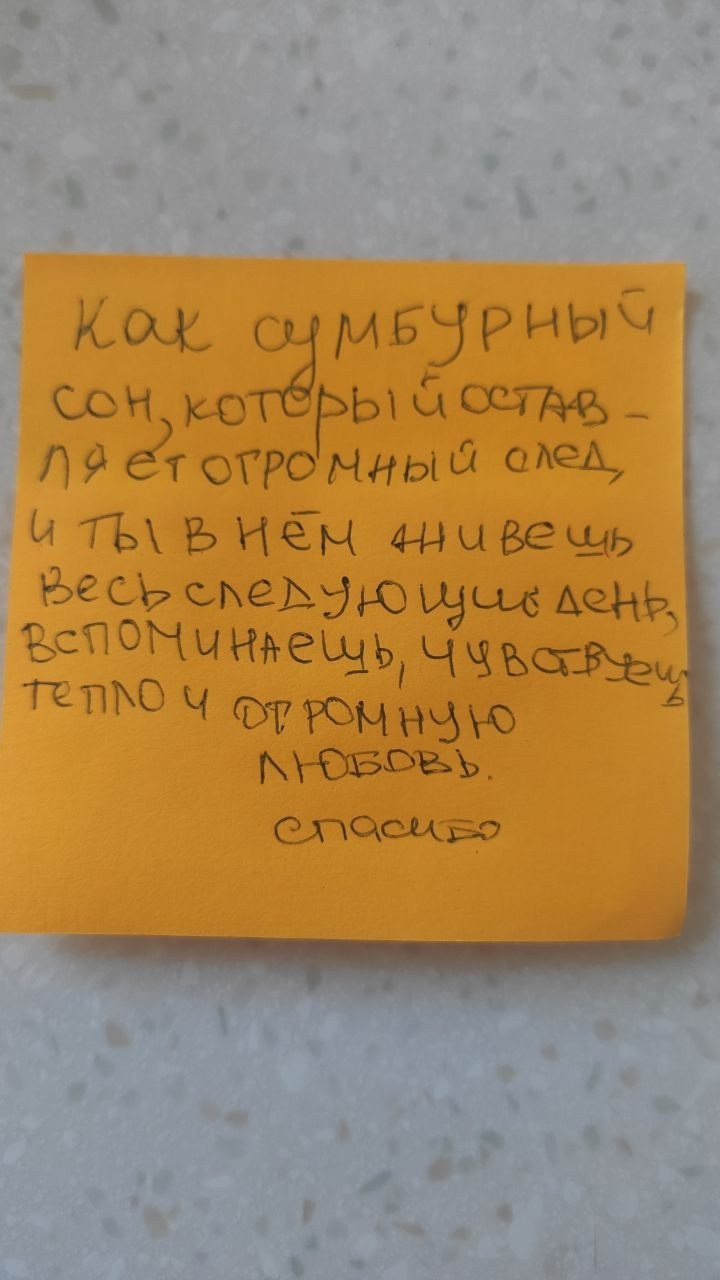 Как сумбурный
сон, который остав-
ляет огромный след,
и ты в нём живешь
весь следующий день,
вспоминаешь, чувствуешь
тепло и огромную
любовь.
спасибо